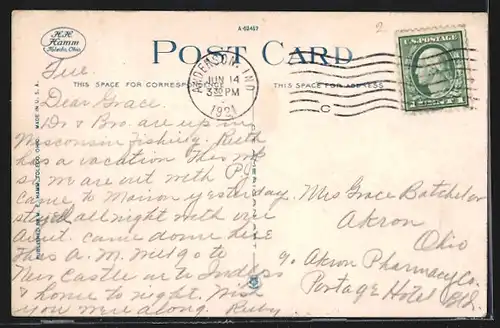 H.H.
Hamm
Toledo, Ohio.
A-62457
2
POST CARD
U.S. POSTAGE
ANDERSON, IND.
JUN 14
3 30 PM
1921
C
THIS SPACE FOR CORRESPONDENCE
THIS SPACE FOR ADDRESS
MADE IN U. S. A.
PUBLISHED BY H. H. HAMM, TOLEDO, OHIO.
Tue.
Dear Grace.
Dr & Bro. are up in
Wisconsin fishing. Ruth
has a vacation this wk
so we are out with P.J.
Came to Marion yesterday
stayed all night with
Aunt. Came down here
this A. M. Will go to
New Castle or to Indpls
& home to night. Wish
you were along. Ruby
Mrs Grace Batchelor
Akron
Ohio
% Akron Pharmacy Co.
Portage Hotel Bld.